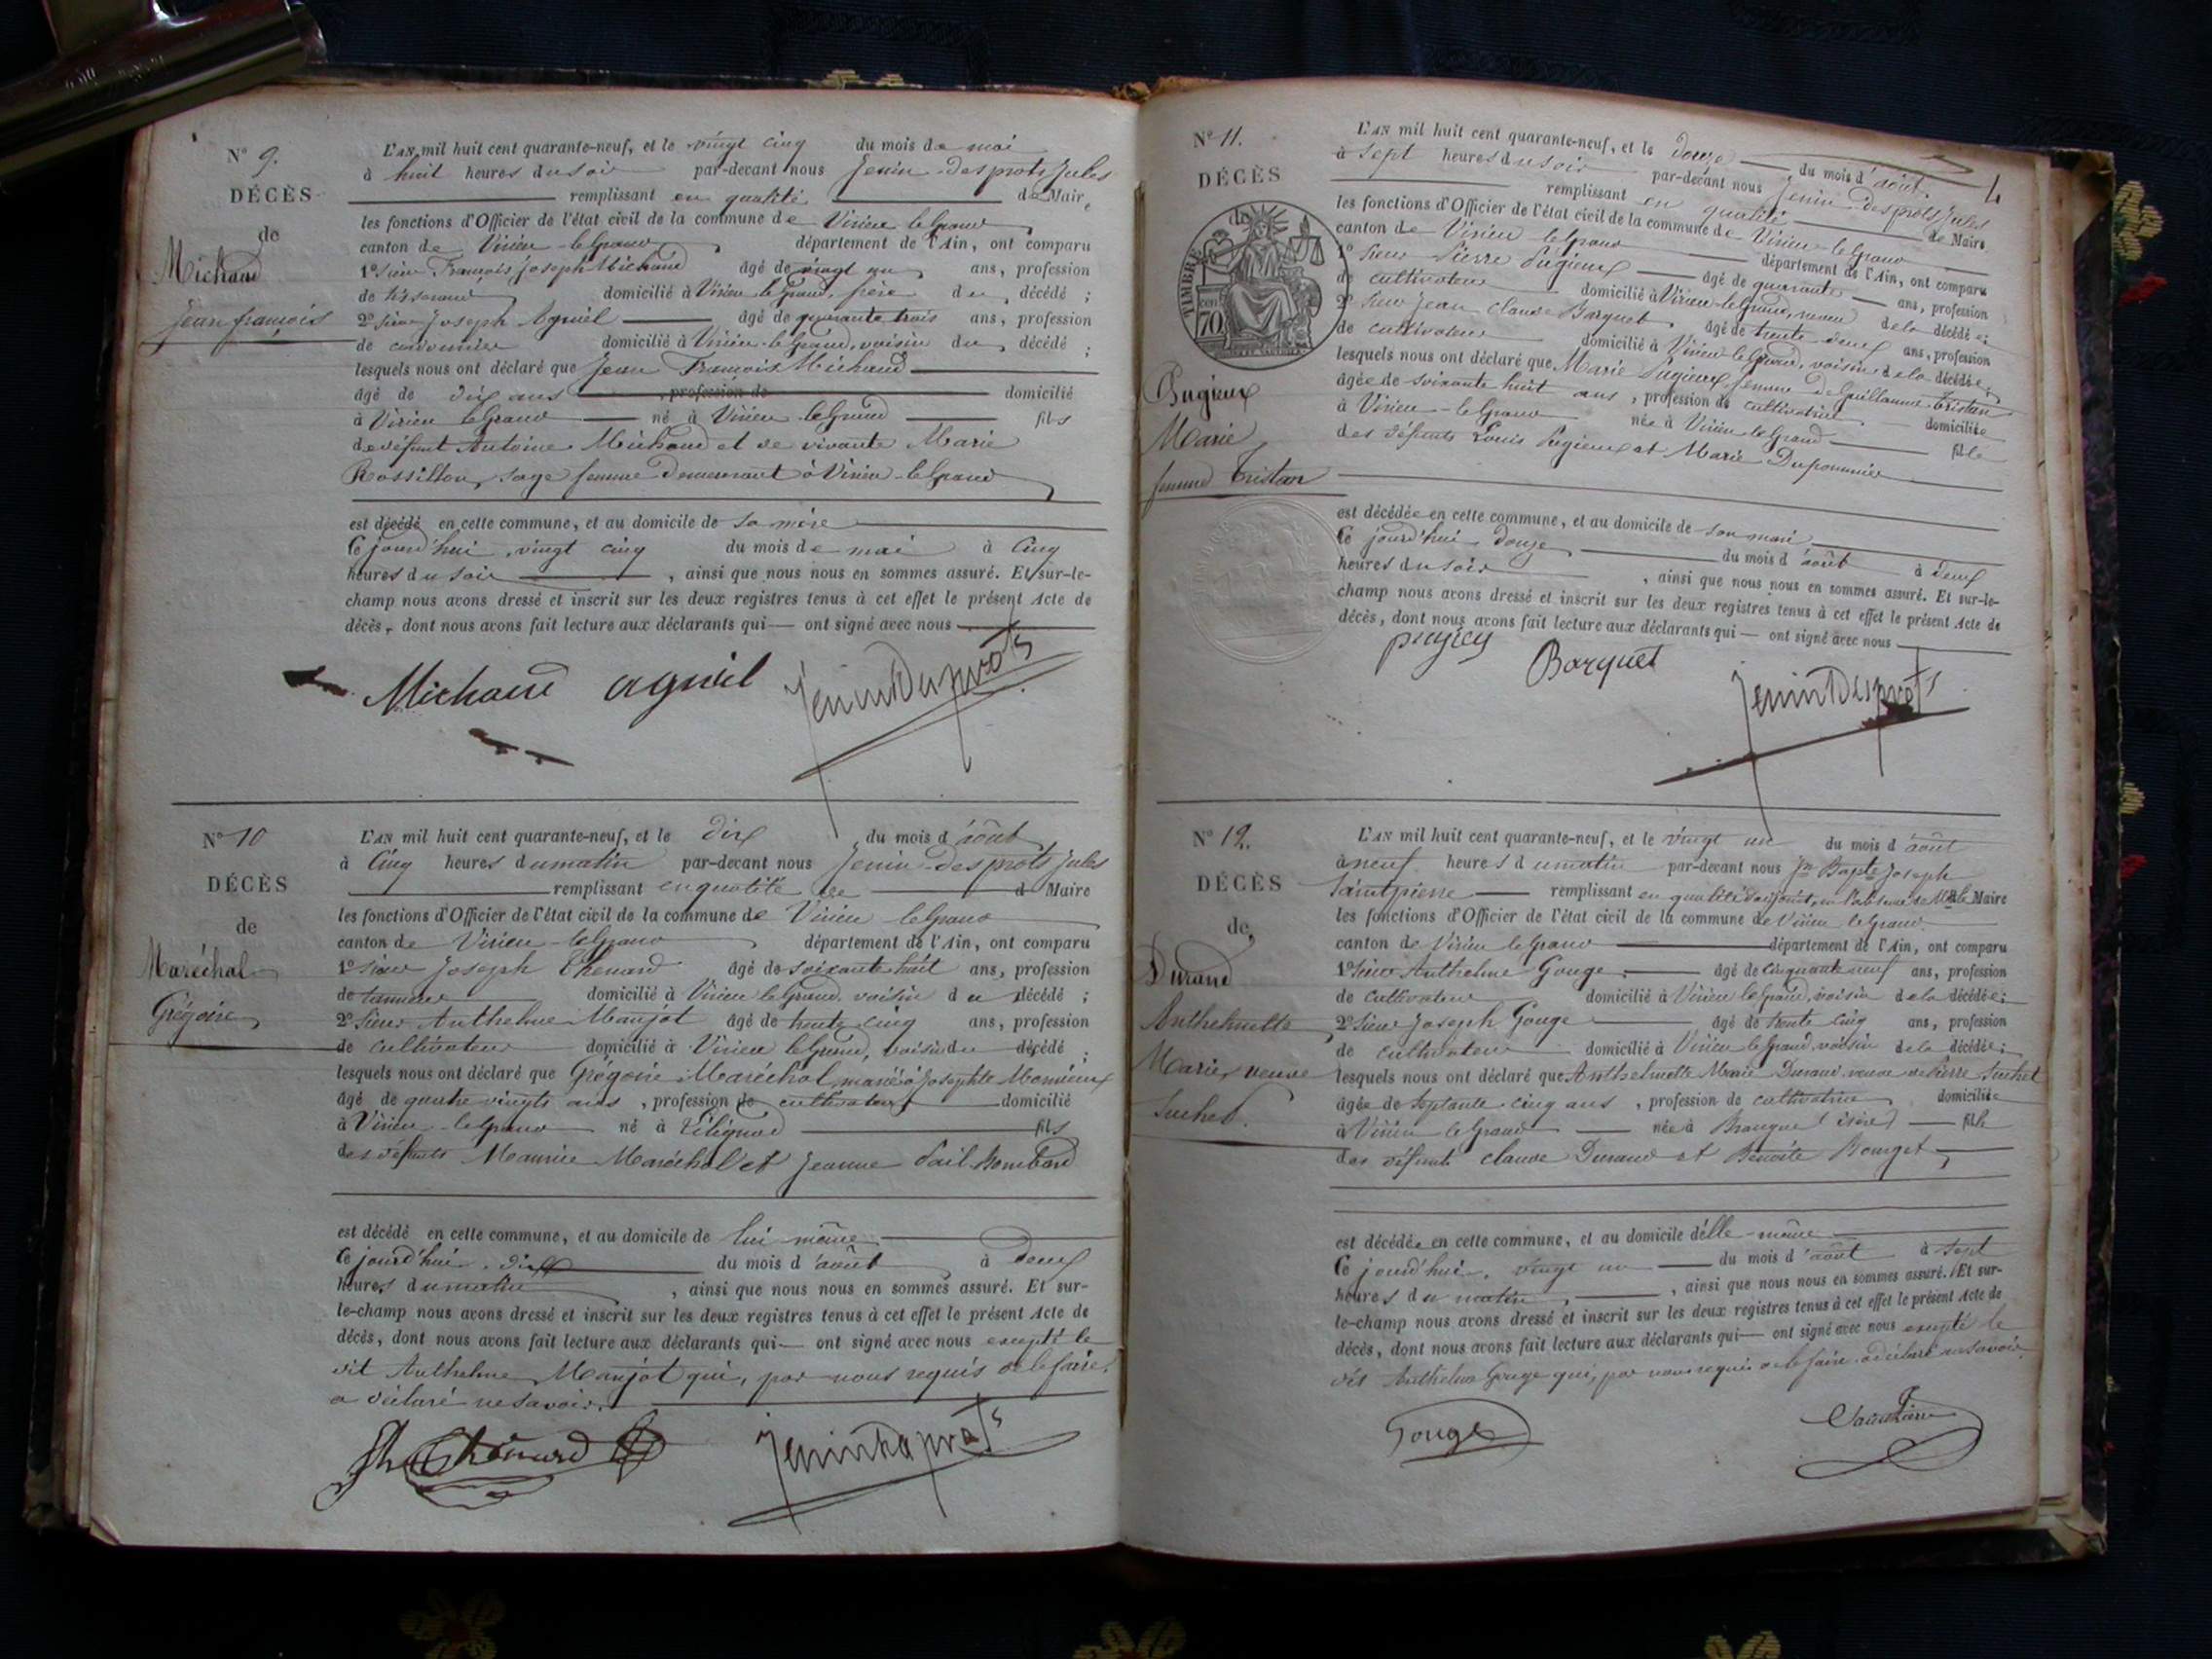 N° 9.
DÉCÈS
de
Michaud
Jean françois
L'AN mil huit cent quarante-neuf, et le vingt cinq du mois de mai
à huit heures du soir par-devant nous Jenin-Desprots Jules
remplissant en qualité de Maire
les fonctions d'Officier de l'état civil de la commune de Virieu le Grand
canton de Virieu-le Grand, département de l'Ain, ont comparu
1° sieur François Joseph Michaud âgé de vingt un ans, profession
de tisserand domicilié à Virieu le Grand, frère du décédé ;
2° sieur Joseph Agniel âgé de quarante trois ans, profession
de cordonnier domicilié à Virieu-le Grand, voisin du décédé ;
lesquels nous ont déclaré que Jean François Michaud
âgé de dix ans, profession de domicilié
à Virieu le Grand né à Virieu-le Grand fils
de défunt Antoine Michaud et de vivante Marie
Rossillon, sage femme demeurant à Virieu-le Grand
est décédé en cette commune, et au domicile de sa mère
Ce jourd'hui, vingt cinq du mois de mai à Cinq
heures du soir, ainsi que nous nous en sommes assuré. Et sur-le-
champ nous avons dressé et inscrit sur les deux registres tenus à cet effet le présent Acte de
décès, dont nous avons fait lecture aux déclarants qui ont signé avec nous
Michaud agniel JeninDesprots
N° 10
DÉCÈS
de
Maréchal
Grégoire
L'AN mil huit cent quarante-neuf, et le dix du mois d'août
à Cinq heures du matin par-devant nous Jenin-Desprots Jules
remplissant en qualité de d Maire
les fonctions d'Officier de l'état civil de la commune de Virieu le Grand
canton de Virieu-le Grand, département de l'Ain, ont comparu
1° sieur Joseph Thenard âgé de soixante huit ans, profession
de tanneur domicilié à Virieu le Grand, voisin du décédé ;
2° sieur Anthelme Maujot âgé de trente cinq ans, profession
de cultivateur domicilié à Virieu le Grand, voisin du décédé ;
lesquels nous ont déclaré que Grégoire Maréchal, marié à Josephte
âgé de quatre vingts ans, profession de cultivateur domicilié
à Virieu-le Grand né à fils
des défunts Maurice Maréchal et Jeanne
est décédé en cette commune, et au domicile de lui même
Ce jourd'hui, dix du mois d'août à deux
heures du matin, ainsi que nous nous en sommes assuré. Et sur-
le-champ nous avons dressé et inscrit sur les deux registres tenus à cet effet le présent Acte de
décès, dont nous avons fait lecture aux déclarants qui ont signé avec nous excepté le
dit Anthelme Maujot qui, par nous requis de le faire,
a déclaré ne savoir.
Thénard JeninDesprots
4
N° 11.
DÉCÈS
de
TIMBRE
70 cen
Pugieux
Marie
femme Tristan
L'AN mil huit cent quarante-neuf, et le douze du mois d'août.
à sept heures du soir par-devant nous Jenin-Desprots Jules
remplissant en qualité de Maire
les fonctions d'Officier de l'état civil de la commune de Virieu-le Grand
canton de Virieu le Grand département de l'Ain, ont comparu
1° sieur Pierre Pugieux âgé de quarante ans, profession
de cultivateur domicilié à Virieu-le Grand, neveu de la décédée ;
2° sieur Jean Claude Barquet âgé de trente deux ans, profession
de cultivateur domicilié à Virieu le Grand, voisin de la décédée ;
lesquels nous ont déclaré que Marie Pugieux femme de Guillaume Tristan
âgée de soixante huit ans, profession de cultivatrice domiciliée
à Virieu-le Grand née à Virieu le Grand fille
des défunts Louis Pugieux et Marie Duponnier
est décédée en cette commune, et au domicile de son mari
Ce jourd'hui douze du mois d'août à deux
heures du soir, ainsi que nous nous en sommes assuré. Et sur-le-
champ nous avons dressé et inscrit sur les deux registres tenus à cet effet le présent Acte de
décès, dont nous avons fait lecture aux déclarants qui ont signé avec nous
pugieu Barquet JeninDesprots
N° 12.
DÉCÈS
de
Durand
Anthelmette
Marie veuve
Suchet.
L'AN mil huit cent quarante-neuf, et le vingt un du mois d'août
à neuf heures du matin par-devant nous Jn Bapte Joseph
Saintpierre remplissant en qualité d'adjoint, en l'absence de Mr le Maire
les fonctions d'Officier de l'état civil de la commune de Virieu le Grand
canton de Virieu le Grand département de l'Ain, ont comparu
1° sieur Anthelme Gouge âgé de cinquante neuf ans, profession
de cultivateur domicilié à Virieu le Grand, voisin de la décédée ;
2° sieur Joseph Gouge âgé de trente cinq ans, profession
de cultivateur domicilié à Virieu le Grand, voisin de la décédée ;
lesquels nous ont déclaré que Anthelmette Marie Durand veuve de Pierre Suchet
âgée de septante-cinq ans, profession de cultivatrice domiciliée
à Virieu le Grand née à Brangue (isère) fille
des défunts Claude Durand et Benoite Bourget
est décédée en cette commune, et au domicile d'elle-même
Ce jourd'hui, vingt un du mois d'août à sept
heures du matin, ainsi que nous nous en sommes assuré. Et sur-
le-champ nous avons dressé et inscrit sur les deux registres tenus à cet effet le présent Acte de
décès, dont nous avons fait lecture aux déclarants qui ont signé avec nous excepté le
dit Anthelme Gouge qui, par nous requis de le faire, a déclaré ne savoir.
Gouge SaintPierre